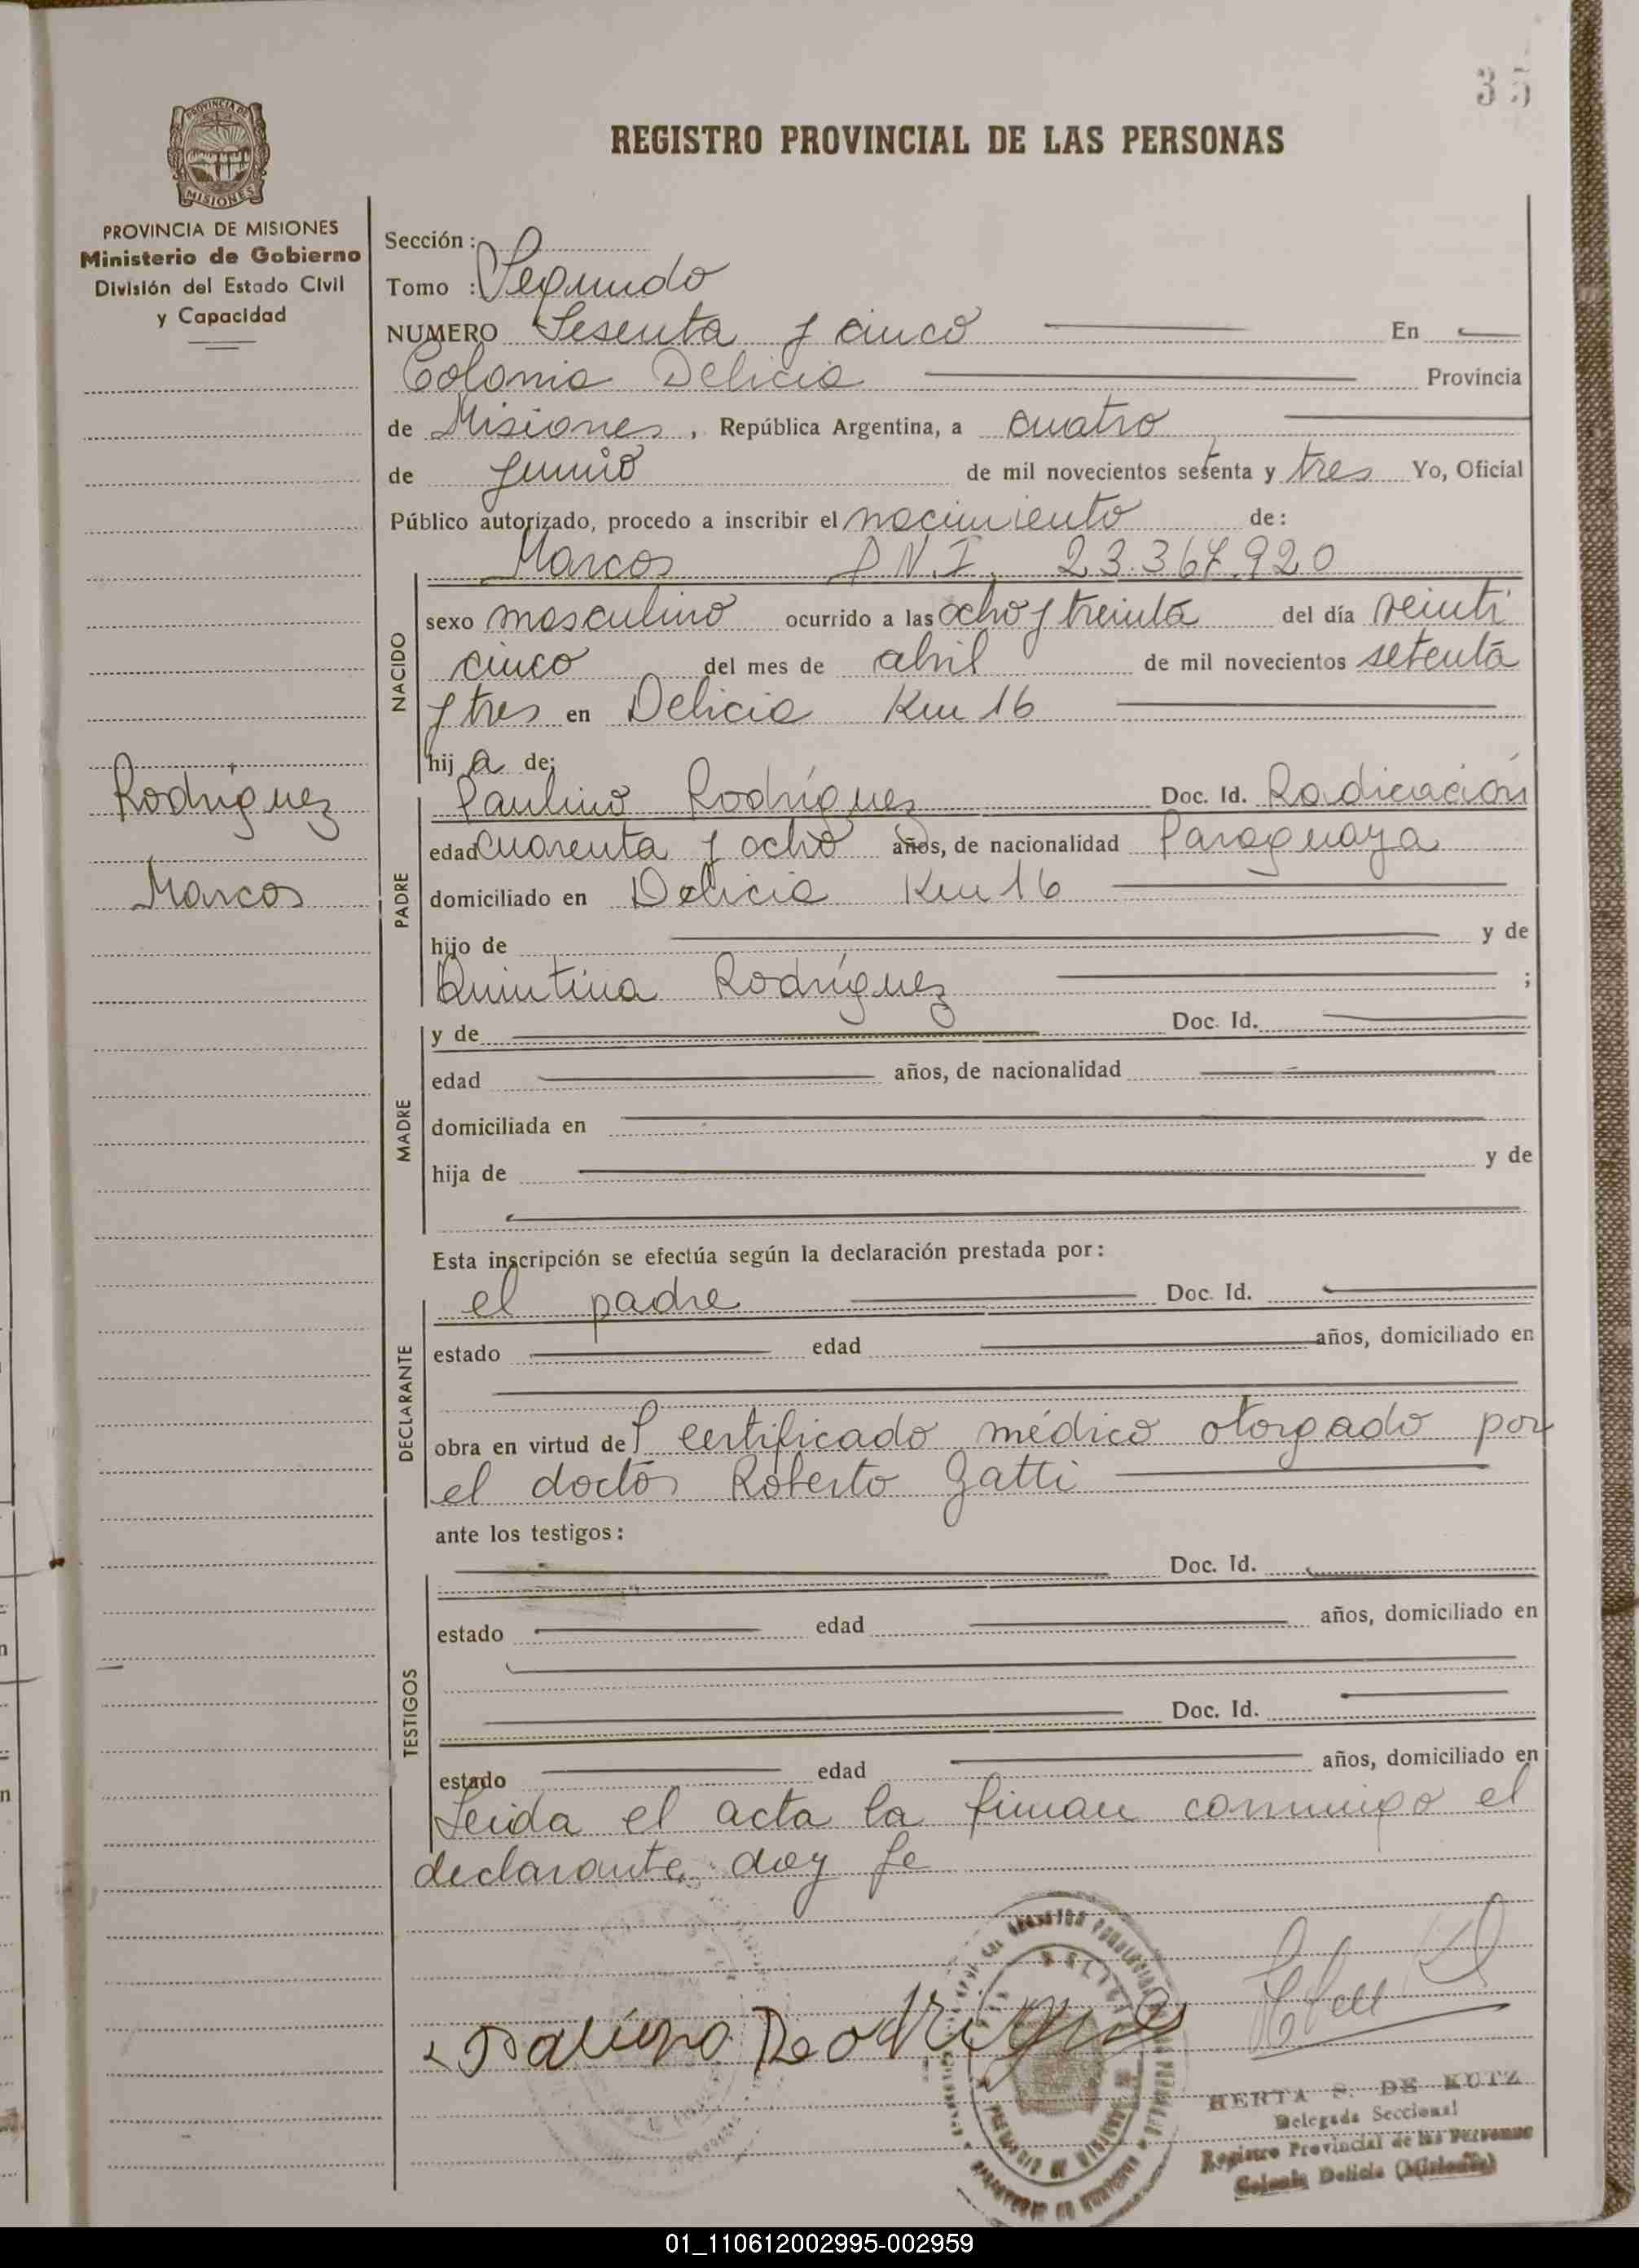 35
PROVINCIA DE
MISIONES
REGISTRO PROVINCIAL DE LAS PERSONAS
PROVINCIA DE MISIONES
Ministerio de Gobierno
División del Estado Civil
y Capacidad
Sección :
Tomo : Segundo
NUMERO Sesenta y cinco En
Colonia Delicia Provincia
de Misiones, República Argentina, a cuatro
de Junio de mil novecientos setenta y tres Yo, Oficial
Público autorizado, procedo a inscribir el nacimiento de:
Marcos D.N.I. 23.367.920
NACIDO
sexo masculino ocurrido a las ocho y treinta del día veinti
cinco del mes de abril de mil novecientos setenta
y tres en Delicia Km 16
hij o de;
Rodríguez
Marcos
PADRE
Paulino Rodríguez Doc. Id. Radicación
edad cuarenta y ocho años, de nacionalidad Paraguaya
domiciliado en Delicia Km 16
hijo de y de
Quintina Rodríguez ;
MADRE
y de Doc. Id.
edad años, de nacionalidad
domiciliada en
hija de y de
Esta inscripción se efectúa según la declaración prestada por:
DECLARANTE
el padre Doc. Id.
estado edad años, domiciliado en
obra en virtud del certificado médico otorgado por
el doctor Roberto Gatti
ante los testigos:
TESTIGOS
Doc. Id.
estado edad años, domiciliado en
Doc. Id.
estado edad años, domiciliado en
Leida el acta la firman conmigo el
declarante. doy fe
Paulino Rodrigue
HERTA S. DE KUTZ
Delegada Seccional
Registro Provincial de las Personas
Colonia Delicia (Misiones)
01_110612002995-002959